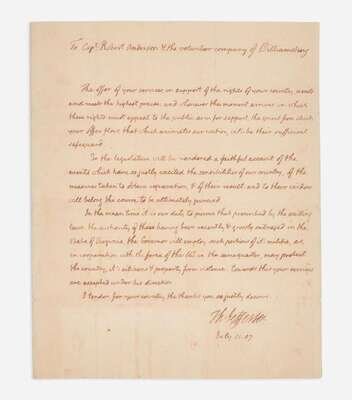 To Capt. Robert Anderson & the volunteer company of Williamsburg
The offer of your services in support of the rights of your country, merits
and meets the highest praise: and whenever the moment arrives in which
these rights must appeal to the public arm for support, the spirit from which
your offer flows, that which animates our nation, will be their sufficient
safeguard.
To the legislature will be rendered a faithful account of the
events which have so justly excited the sensibilities of our country, of the
measures taken to obtain reparation, & of their result: and to their wisdom
will belong the course to be ultimately pursued.
In the mean time it is our duty to pursue that prescribed by the existing
laws. the authority of these having been recently & grossly outraged in the
the Governor will employ such portions of it's militia, as,
in cooperation with the force of the US. in the same quarter, may protect
the country, it's citizens & property from violence. towards this your services
are accepted under his direction.
I tender for your country the thanks you so justly deserve.
Th: Jefferson
July 07